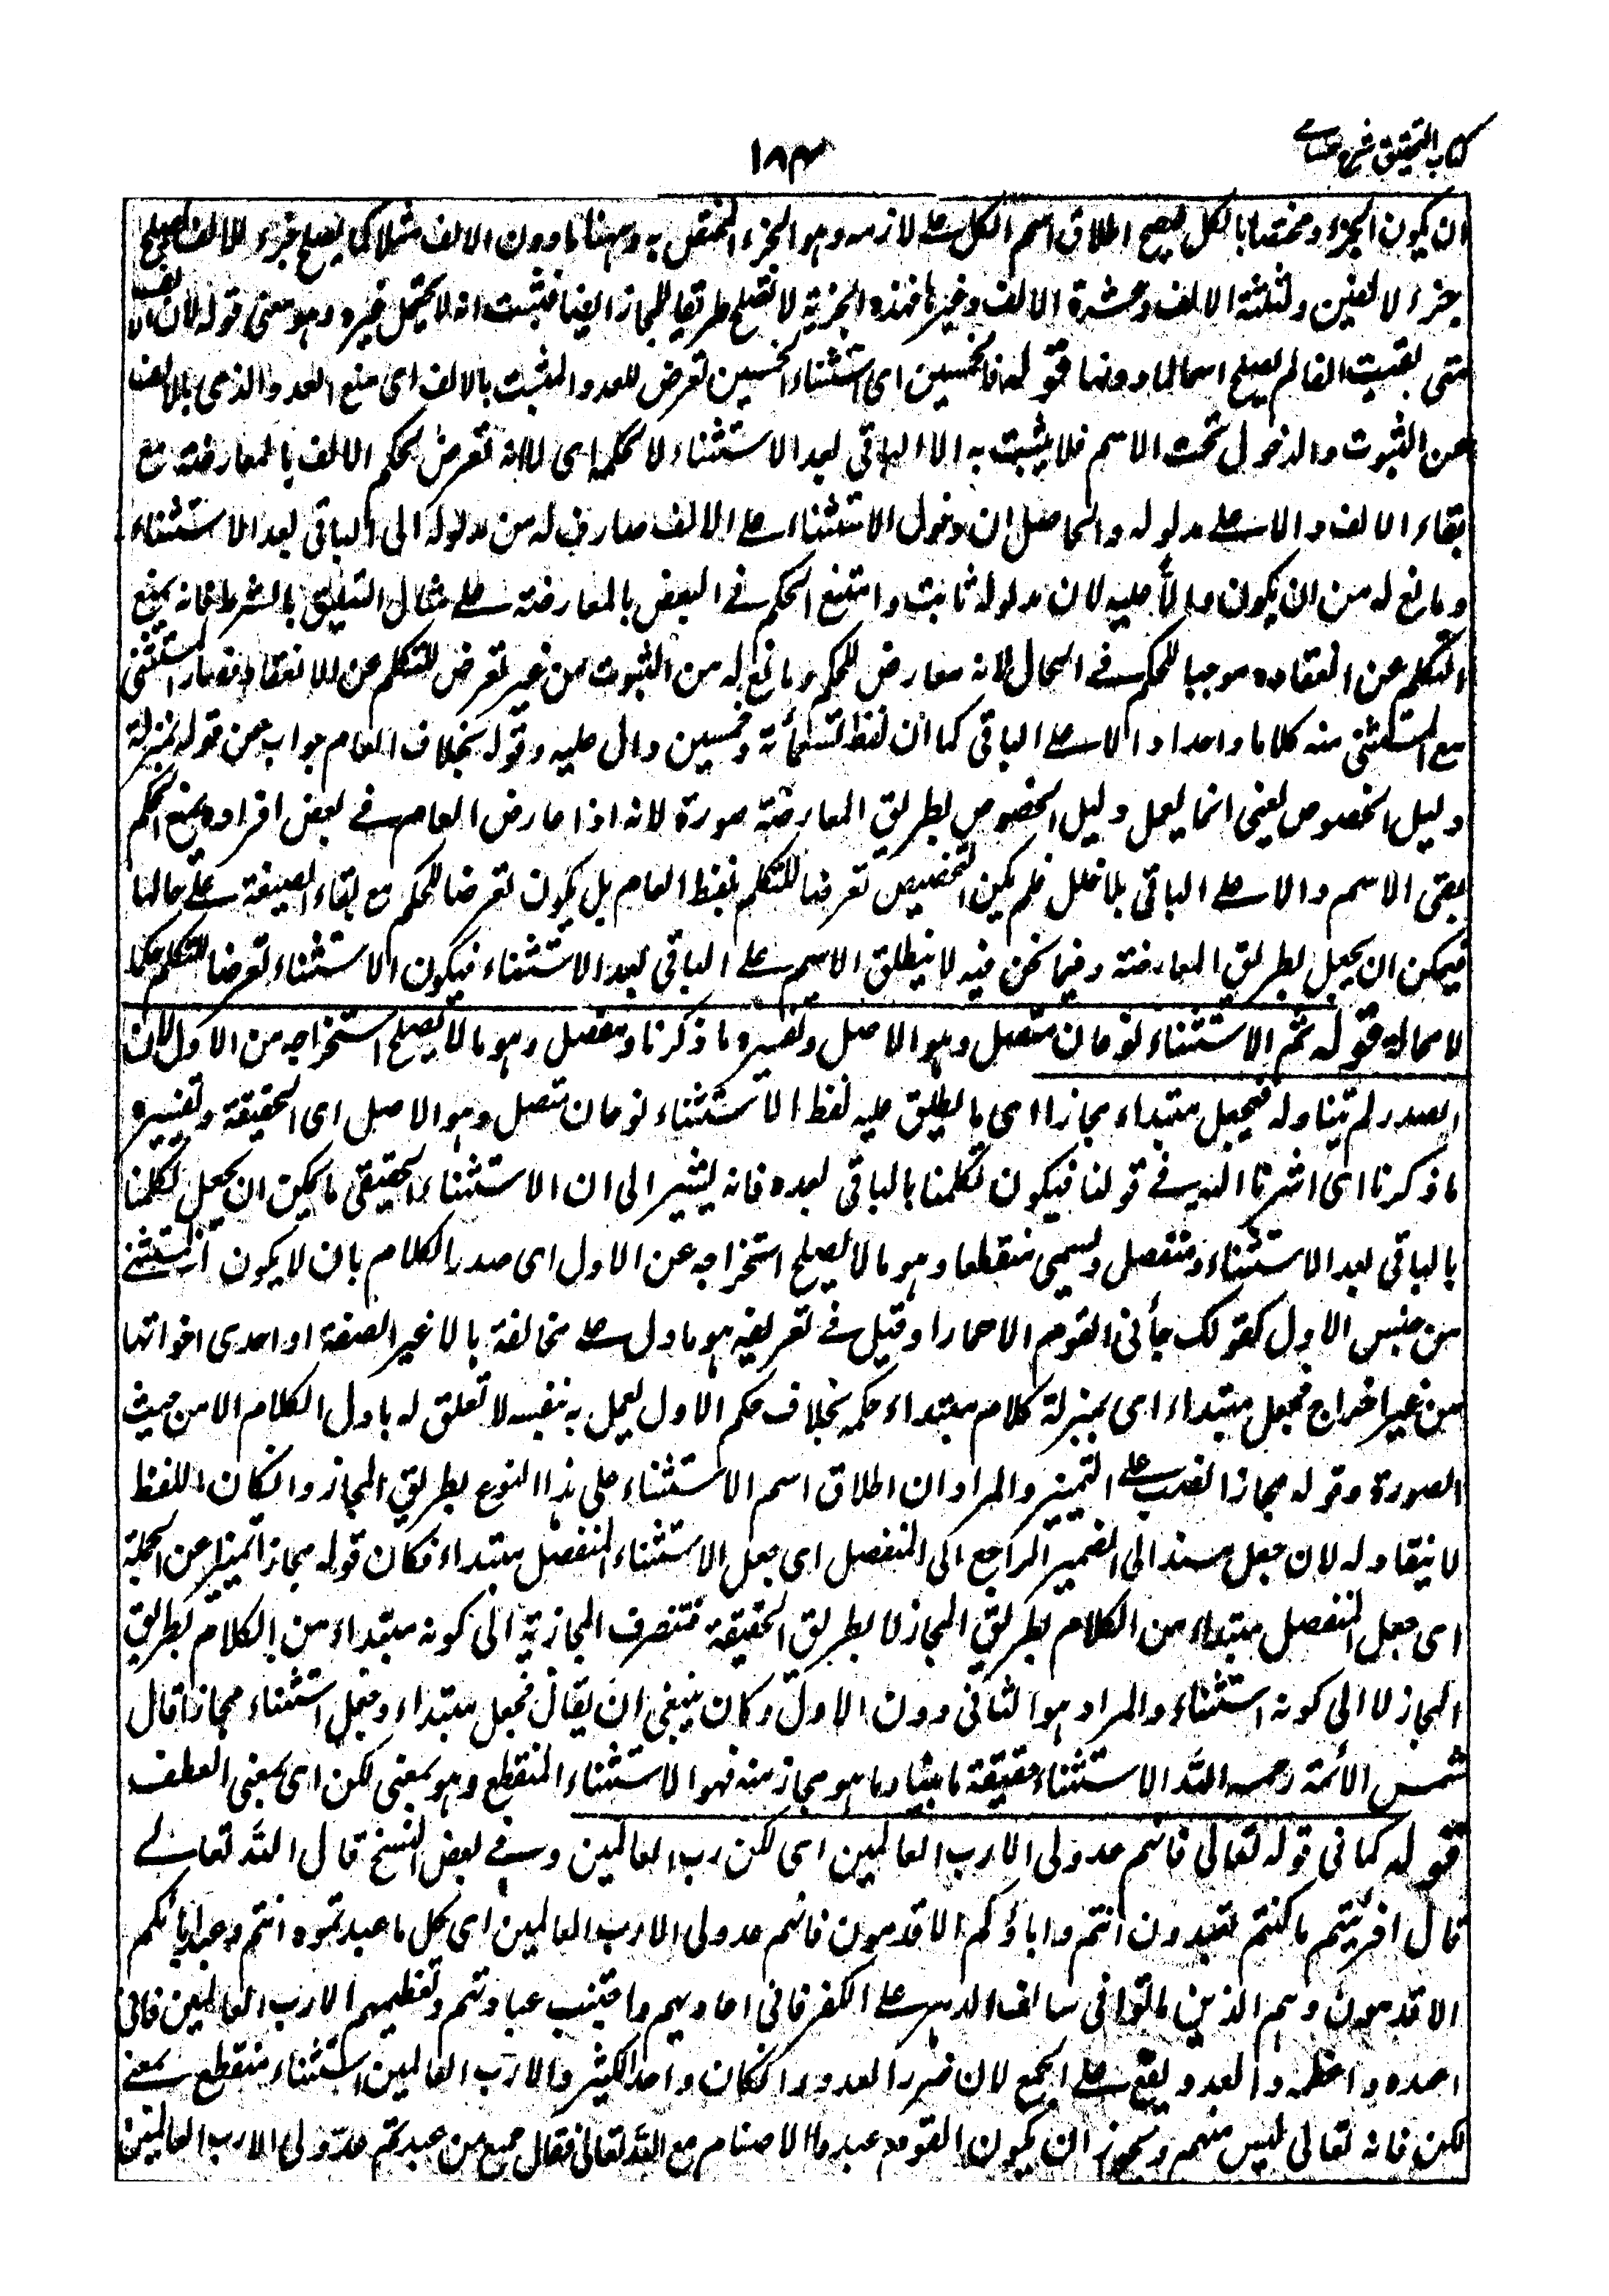 كتاب التحقيق شرح حسامے
١٨٣
ان يكون الجزء مختصا بالكل ليصح اطلاق اسم الكل علے لازمه وهو الجزء المختص به وههنا ما دون الالف مثلا كما يصلح جزء للالف يصلح
جزء الالفين ولثلثة الالف وعشرة الالف وغيرها فهذه الجزئية لا تصلح طريقا للمجاز ايضا فثبت انه لا يحتمل غيره وهو معنى قوله لان الالف
متى بقيت الفا لم يصلح اسما لما دونها قوله فالخمسين اى استثناء الخمسين تعرض للعدد المثبت بالالف اى منع العدد الذى بالالف
عن الثبوت والدخول تحت الاسم فلا يثبت به الا الباقى بعد الاستثناء لا لحكمه اى لا انه تعرض لحكم الالف بالمعارضة مع
بقاء الالف دالا علے مدلوله والحاصل ان دخول الاستثناء علے الالف صارف له من مدلوله الى الباقى بعد الاستثناء
ومانع له من ان يكون دالا عليه لان مدلوله ثابت وامتنع الحكم فے البعض بالمعارضة علے مثال التعليق بالشرط فانه يمنع
التكلم عن انعقاده موجبا للحكم فے الحال لانه معارض للحكم ومانع له من الثبوت من غير تعرض للتكلم عن الانعقاد فصار المستثنى
مع المستثنى منه كلاما واحدا دالا علے الباقى كما ان لفظ تسعمأئة وخمسين دال عليه وقوله بخلاف العام جواب عن قوله بمنزلة
دليل الخصوص يعنى انما يعمل دليل الخصوص بطريق المعارضة صورة لانه اذا عارض العام فے بعض افراده يمنع الحكم
بقى الاسم دالا علے الباقى بلا خلل فلم يكن التخصيص تعرضا للتكلم بلفظ العام بل يكون تعرضا للحكم مع بقاء الصيغة علے حالها
فيمكن ان يجعل بطريق المعارضة وفيما نحن فيه لا ينطلق الاسم علے الباقى بعد الاستثناء فيكون الاستثناء تعرضا للتكلم حكما
لا محالة قوله ثم الاستثناء نوعان متصل وهو الاصل وتفسيره ما ذكرنا ومنفصل وهو ما لا يصلح استخراجه من الاول لان
الصدر لم يتناوله فيجعل مبتداء مجازا اى ما يطلق عليه لفظ الاستثناء نوعان متصل وهو الاصل اى الحقيقة وتفسيره
ما ذكرنا اى اشرنا اليه فے قولنا فيكون تكلمنا بالباقى بعده فانه يشير الى ان الاستثناء الحقيقى ما يمكن ان يجعل تكلمنا
بالباقى بعد الاستثناء ومنفصل ويسمى منقطعا وهو ما لا يصلح استخراجه عن الاول اى صدر الكلام بان لا يكون المستثنے
من جنس الاول كقولك جأنى القوم الا حمارا وقيل فے تعريفه هو ما دل علے مخالفة بالا غير الصفة او احدى اخواتها
من غير اخراج فجعل مبتداء اى بمنزلة كلام مبتداء حكمه بخلاف حكم الاول يعمل به بنفسه لا تعلق له باول الكلام الا من حيث
الصورة وقوله مجازا نصب علے التمييز والمراد ان اطلاق اسم الاستثناء على هذا النوع بطريق المجاز وان كان اللفظ
لا ينقاد له لان جعل مسند الى الضمير الراجع الى المنفصل اى جعل الاستثناء المنفصل مبتداء فكان قوله مجازا تمييزا عن الجملة
اى جعل المنفصل مبتداء من الكلام بطريق المجاز لا بطريق الحقيقة فتنصرف المجازية الى كونه مبتداء من الكلام بطريق
المجاز لا الى كونه استثناء والمراد هو الثانى دون الاول وكان ينبغى ان يقال فجعل مبتداء وجعل استثناء مجازا قال
شمس الأئمة رحمه الله الاستثناء حقيقة ما بينا وما هو مجاز منه فهو الاستثناء المنقطع وهو بمعنى لكن اى بمعنى العطف
قوله كما فى قوله تعالى فانهم عدو لى الا رب العالمين اى لكن رب العالمين وفے بعض النسخ قال الله تعالے
قال افرأيتم ما كنتم تعبدون انتم واباؤكم الاقدمون فانهم عدو لى الا رب العالمين اى كل ما عبدتموه انتم وعبد اباؤكم
الاقدمون وهم الذين ماتوا فى سالف الدهر علے الكفر فانى اعاديهم واجتنب عبادتهم وتعظيمهم الا رب العالمين فانى
اعبده واعظمه والعدو يقع علے الجمع لان ضرر العدو وان كان واحدا كثير والا رب العالمين استثناء منقطع بمعنے
لكن فانه تعالى ليس منهم ويجوز ان يكون القوم عبدوا الاصنام مع الله تعالى فقال جميع من عبدتم عدو لى الا رب العالمين